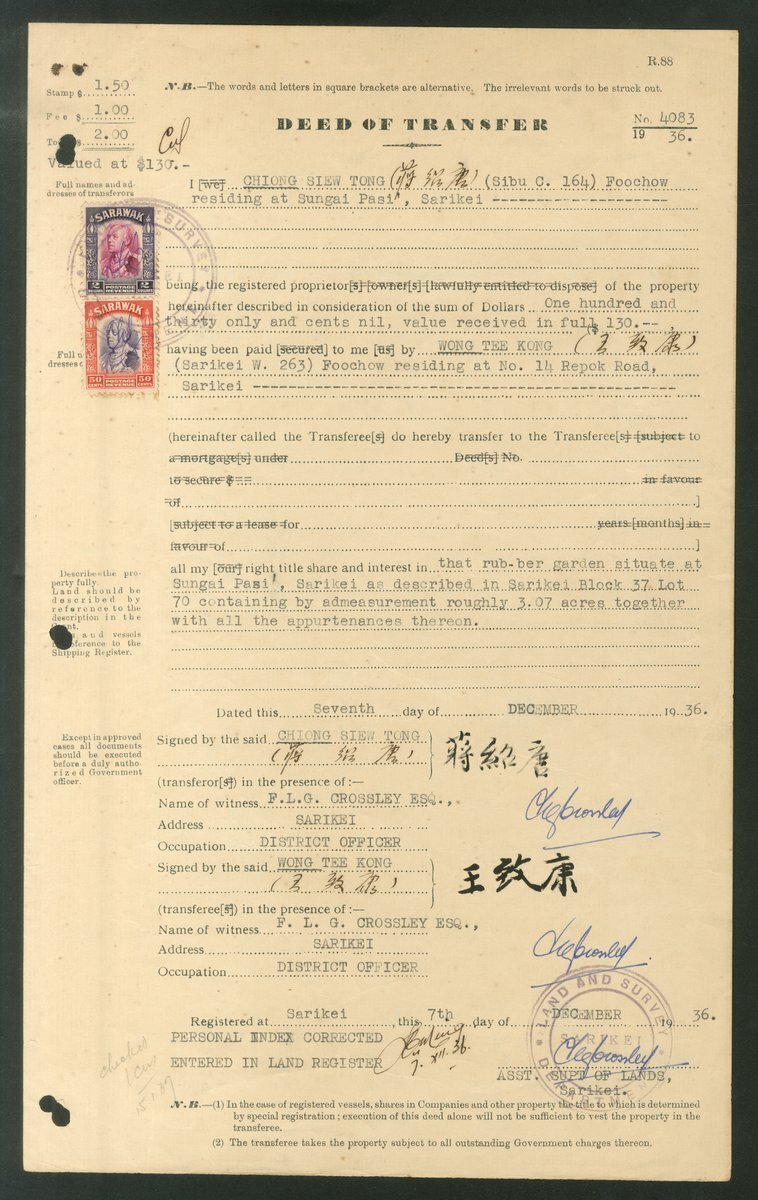 R.88
Stamp $ 1.50
Fee $ 1.00
2.00
Valued at $130.-
N.B.—The words and letters in square brackets are alternative. The irrelevant words to be struck out.
DEED OF TRANSFER
No. 4083
19 36.
Full names and ad-
dresses of transferors
I [we] CHIONG SIEW TONG (蔣紹唐) (Sibu C. 164) Foochow
residing at Sungai Pasi', Sarikei --------------------
SARAWAK
2 2
POSTAGE
REVENUE
SARAWAK
50 50
CENTS POSTAGE CENTS
REVENUE
being the registered proprietor[s] [owner[s] [lawfully entitled to dispose] of the property
hereinafter described in consideration of the sum of Dollars One hundred and
thirty only and cents nil, value received in full $ 130.--
having been paid [secured] to me [us] by WONG TEE KONG (王致康)
(Sarikei W. 263) Foochow residing at No. 14 Repok Road,
Sarikei ----------------------------------------------
(hereinafter called the Transferee[s] do hereby transfer to the Transferee[s] [subject to
a mortgage[s] under Deed[s] No.
to secure $ in favour
of ]
[subject to a lease for years [months] in
favour of ]
all my [our] right title share and interest in that rub-ber garden situate at
Sungai Pasi', Sarikei as described in Sarikei Block 37 Lot
70 containing by admeasurement roughly 3.07 acres together
with all the appurtenances thereon.
Describe the pro-
perty fully.
Land should be
described by
reference to the
description in the
and vessels
reference to the
Shipping Register.
Dated this Seventh day of DECEMBER 19 36.
Except in approved
cases all documents
should be executed
before a duly autho-
rized Government
officer.
Signed by the said CHIONG SIEW TONG
(蔣紹唐)
蔣紹唐
(transferor[s]) in the presence of:—
Name of witness F.L.G. CROSSLEY ESQ.,
Address SARIKEI
Occupation DISTRICT OFFICER
Signed by the said WONG TEE KONG
(王致康)
王致康
(transferee[s]) in the presence of:—
Name of witness F. L. G. CROSSLEY ESQ.,
Address SARIKEI
Occupation DISTRICT OFFICER
LAND AND SURVEY
SARIKEI
Registered at Sarikei, this 7th day of DECEMBER 19 36.
PERSONAL INDEX CORRECTED
ENTERED IN LAND REGISTER
7. XII. 36.
ASST. SUPT OF LANDS,
Sarikei.
N.B.—(1) In the case of registered vessels, shares in Companies and other property the title to which is determined
by special registration; execution of this deed alone will not be sufficient to vest the property in the
transferee.
(2) The transferee takes the property subject to all outstanding Government charges thereon.